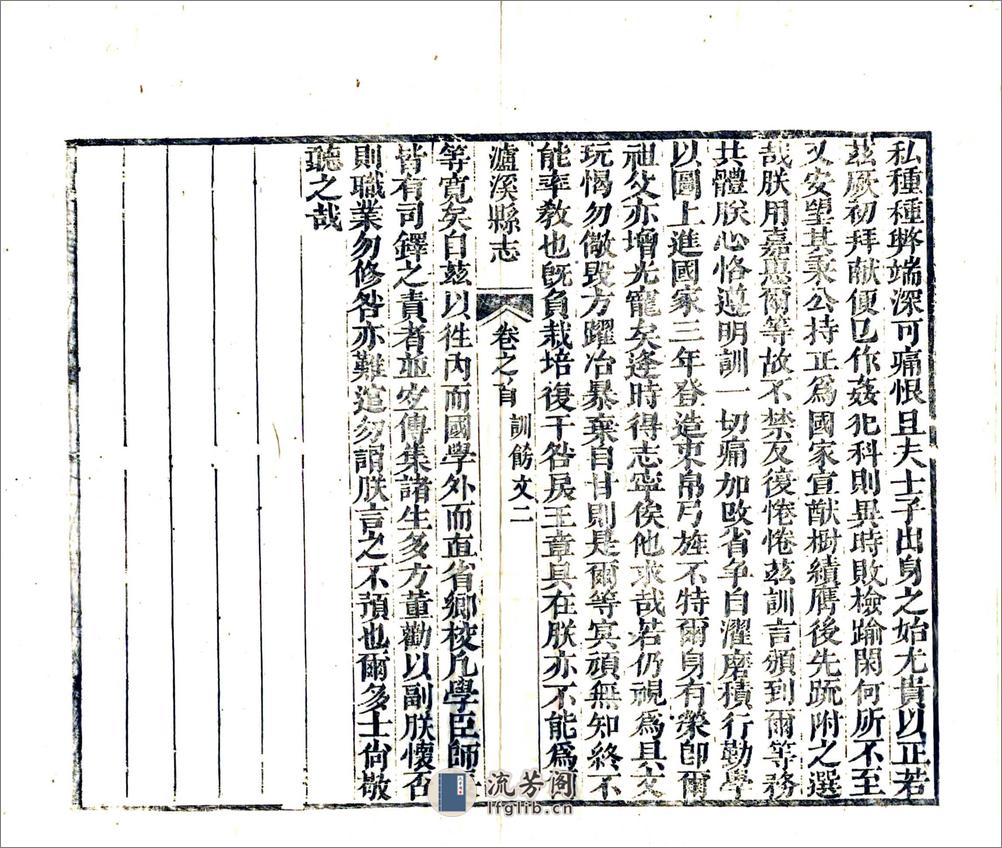 私種種弊端深可痛恨且夫士子出身之始尤貴以正若
茲厥初拜献便已作姦犯科則異時敗檢踰閑何所不至
又安望其秉公持正爲國家宣猷樹績膺後先䟽附之選
哉朕用嘉惠爾等故不禁反復惓惓茲訓言頒到爾等務
共體朕心恪遵明訓一切痛加改省争自濯磨積行勤學
以圖上進國家三年登造束帛弓旌不特爾身有榮卽爾
祖父亦增光寵矣逢時得志寧俟他求哉若仍視爲具文
玩愒勿儆毀方躍冶暴棄自甘則是爾等冥頑無知終不
能率教也旣負栽培復干咎戾王章具在朕亦不能爲爾
瀘溪縣志
卷之首
訓飭文二
等寬矣自茲以徃內而國學外而直省鄉校凡學臣師
皆有司鐸之責者並宜傳集諸生多方董勸以副朕懷否
則職業勿修咎亦難逭勿謂朕言之不預也爾多士尙敬
聽之哉
流芳阁
lfglib.com